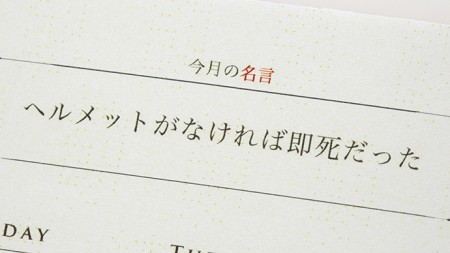 今月の名言
ヘルメットがなければ即死だった
DAY
TU